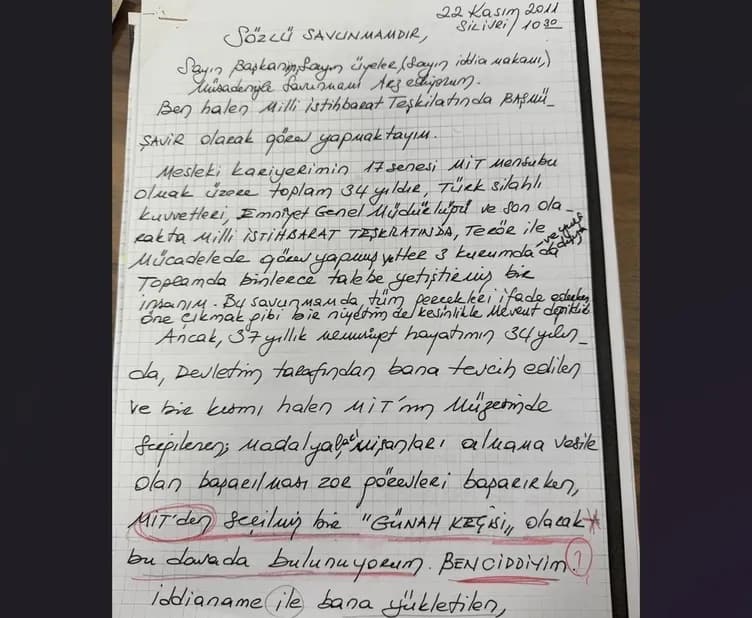 22 KASIM 2011
SİLİVRİ / 10 30
SÖZLÜ SAVUNMAMDIR,
Sayın Başkanım, Sayın üyeler, (Sayın iddia makamı,)
Müsadenizle Savunmamı Arz ediyorum.
Ben halen Milli istihbarat Teşkilatında BAŞMÜ_
ŞAVİR olarak görev yapmaktayım.
Mesleki kariyerimin 17 senesi MİT Mensubu
olmak üzere toplam 34 yıldır, Türk silahlı
kuvvetleri, Emniyet Genel Müdürlüğü ve son ola_
rakta Milli İSTİHBARAT TEŞKİLATINDA, Terör ile
Mücadelede görev yapmış ve her 3 kurumda da
Toplamda binlerce talebe yetiştirmiş bir
insanım. Bu savunmamda, tüm gerçekleri ifade ederken
öne çıkmak gibi bir niyetim de kesinlikle Mevcut değildir.
Ancak, 37 yıllık memuriyet hayatımın 34 yılın_
da, Devletim tarafından bana tevcih edilen
ve bir kısmı halen MİT'nin Müzesinde
Sergilenen; madalyalar, nişanları almama vesile
olan başarılması zor görevleri başarırken,
MİT'den Seçilmiş bir "GÜNAH KEÇİSİ" olarak *
bu davada bulunuyorum. BEN CİDDİYİM. ?
iddianame ile bana yükletilen,